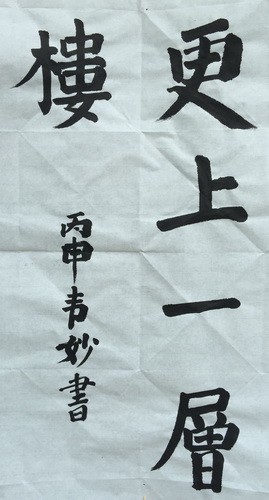 更上一層
樓
丙申韦妙書